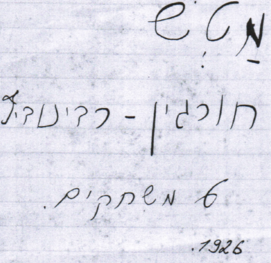 מַטְשׁ
חורגין - רבינוביץ
6 משחקים.
1926.